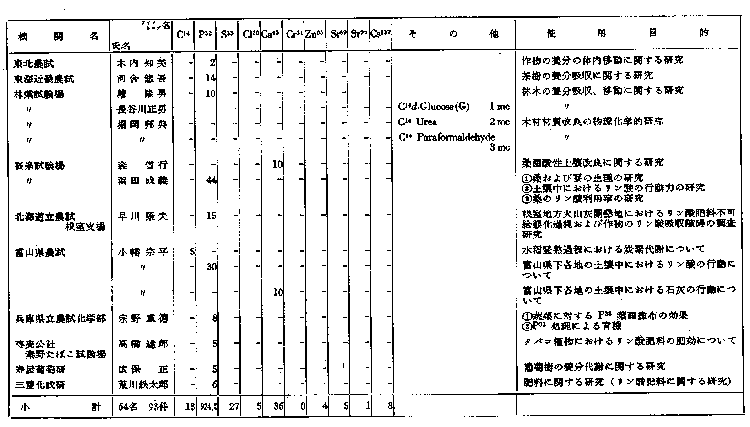 機関名 氏名 アイソトープ名 C¹⁴ P³² S³⁵ Cl³⁶ Ca⁴⁵ Cr⁵¹ Zn⁶⁵ Sr⁸⁹ Sr⁹⁰ Cs¹³⁷ その他 使用目的
東北農試 木内知美 - 2 - - - - - - - - 作物の養分の体内移動に関する研究
東海近畿農試 河合惣吾 - 14 - - - - - - - - 茶樹の養分吸収に関する研究
林業試験場 隆男 - 10 - - - - - - - - 林木の養分吸収、移動に関する研究
〃 長谷川正男 - - - - - - - - - - C¹⁴d.Glucose(G) 1 mc 〃
〃 - - - - - - - - - - C¹⁴ Urea 2 mc 木材材質改良の物理化学的研究
〃 〃 - - - - - - - - - - C¹⁴ Paraformaldehyde 3 mc 〃
蚕糸試験場 信行 - - - - 10 - - - - - 桑園酸性土壌改良に関する研究
〃 - 44 - - - - - - - - ①桑および蚕の生理の研究
②土壌中におけるリン酸の行動力の研究
③桑のリン酸利用率の研究
北海道立農試 根室支場 早川 - 15 - - - - - - - - 根室地方火山灰開墾地におけるリン酸肥料不可
給態化過程および作物のリン酸吸収の調査
研究
富山県農試 小幡宗平 5 - - - - - - - - - 水稲登熟過程における炭素代謝について
〃 - 30 - - - - - - - - 富山県下各地の土壌中におけるリン酸の行動に
ついて
〃 - - - - 10 - - - - - 富山県下各地の土壌中における石灰の行動につ
いて
兵庫県立農試化学部 重徳 - 8 - - - - - - - - ①蔬菜に対する P³² 葉面撒布の効果
②P³² 処理による育種
専売公社 秦野たばこ試験場 高橋達郎 - 5 - - - - - - - - タバコ植物におけるリン酸肥料の肥効について
寿屋葡萄研 正 - 5 - - - - - - - - 葡萄樹の養分代謝に関する研究
三菱化成研 荒川鉄太郎 - 6 - - - - - - - - 肥料に関する研究(リン酸肥料に関する研究)
小計 54名 93件 18 924.5 27 5 36 0 4 5 1 8